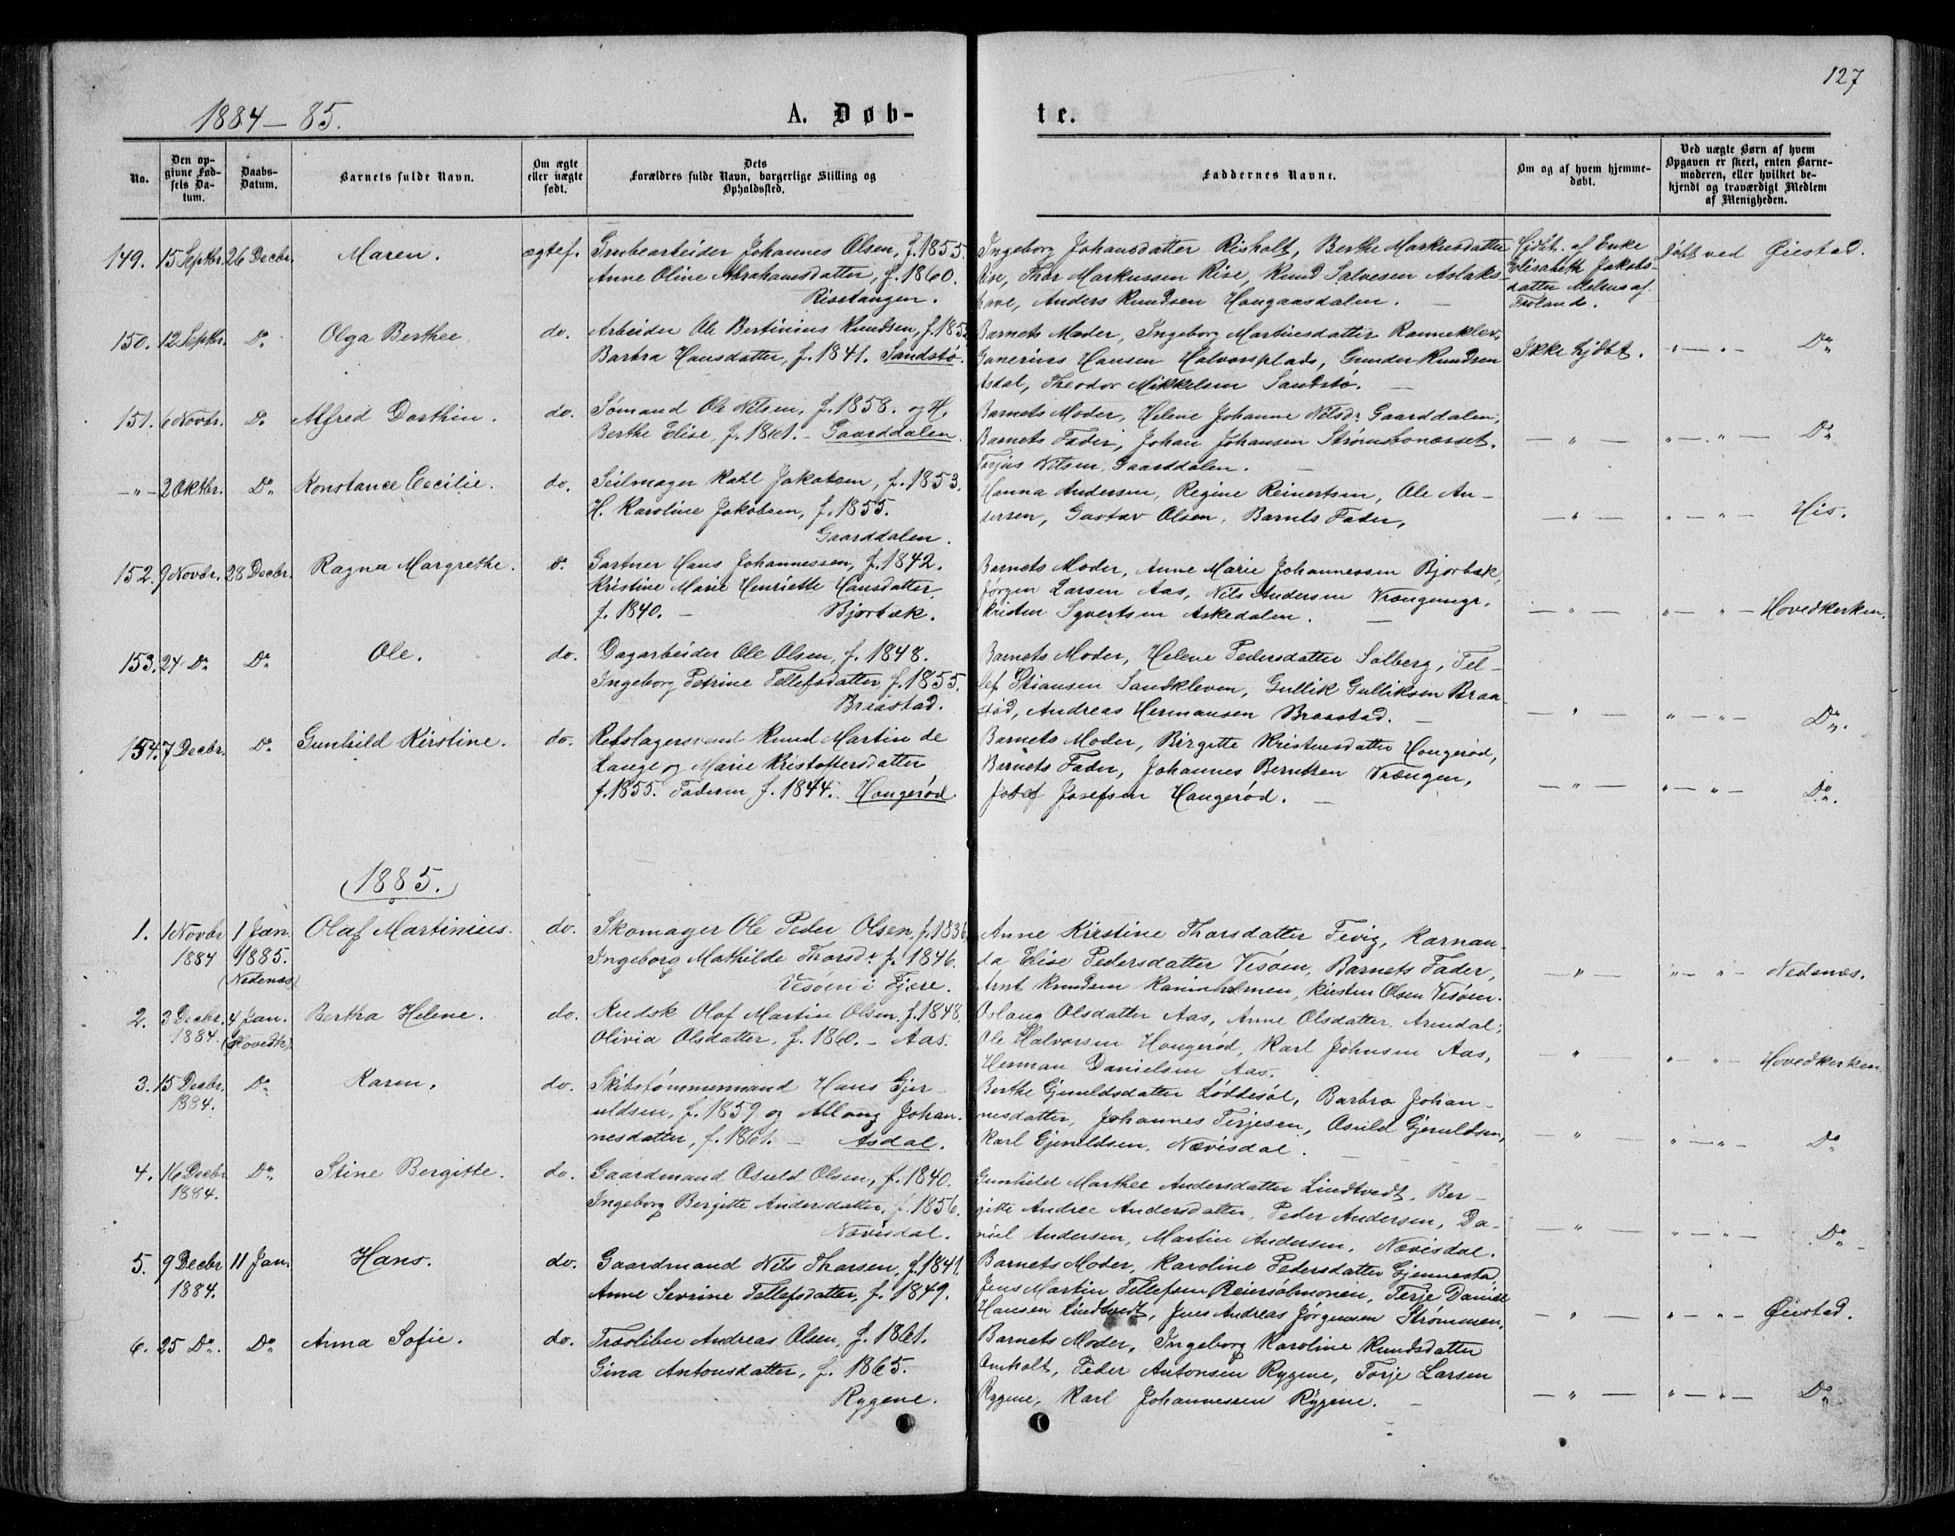 127
1884 – 85.
A. Døb-
te.
No.
Den opgivne Fødsels Datum.
Daabs-Datum.
Barnets fulde Navn.
Om ægte eller uægte født.
Dets Forældres fulde Navn, borgerlige Stilling og Opholdssted.
Faddernes Navne.
Om og af hvem hjemmedøbt.
Ved uægte Børn af hvem Opgaven er skeet, enten Barnemoderen, eller hvilket bekjendt og troværdigt Medlem af Menigheden.
149. 15 Septbr. 26 Decbr. Maren. ægtef.
Grubearbeider Johannes Olsen, f. 1855.
Anne Oline Abrahamsdatter, f. 1860.
Risetangen.
Ingeborg Johansdatter Risholt, Berthe Markusdatter
Rise, Thor Markussen Rise, Knud Salvesen Aslaks-
have, Anders Knudsen Haugaasdalen.
Hjdbt. af Enke
Elisabeth Jakobs-
datter Melaas af
Froland.
Døbt ved Øiestad.
150. 12 Septbr. Do. Olga Berthee do.
Arbeider Ole Bertinius Knudsen, f. 1852
Barbra Hansdatter, f. 1841. Sandstø.
Barnets Moder, Ingeborg Martinsdatter Ranneklev,
Gunerius Hansen Halvorsplads, Gunder Knudsen
Asdal, Theodor Mikkelsen Sandstø.
Ikke hjdbt. " — " — Do.
151. 6 Novbr. Do. Alfred Dorthin. do.
Sømand Ole Nilsen, f. 1858. og H.
Berthe Elise, f. 1861. – Gaarddalen.
Barnets Moder, Helene Johanne Nilsdr. Gaarddalen,
Barnets Fader, Johan Johansen Strømsbonæsset.
Torjus Nilsen, Gaarddalen.
— " — " — " — Do.
— " — 2 Oktbr. Do. Konstance Cecilie. do.
Seilmager Karl Jakobsen, f. 1853.
H. Karoline Jakobsen, f. 1855.
Gaarddalen.
Hanna Andersen, Regine Reinertsen, Ole An-
dersen, Gustav Olsen, Barnets Fader,
— " — " — " — His.
152. 9 Novbr. 28 Decbr. Ragna Margrethe. do.
Gartner Hans Johannessen, f. 1842.
Kristine Marie Henriette Hansdatter,
f. 1840. – Bjorbæk.
Barnets Moder, Anne Marie Johannessen Bjorbæk,
Jørgen Larsen Aas, Nils Andersen Vrængen,
Kristen Syvertsen Askedalen.
— " — " — " — Hovedkirken.
153. 24 Do. Do. Ole. do.
Dagarbeider Ole Olsen, f. 1848.
Ingeborg Petrine Tellefsdatter, f. 1855.
Braastad.
Barnets Moder, Helene Pedersdatter Solberg, Tel-
lef Stiansen Sandkleven, Gullik Gulliksen Braa-
stad, Andreas Hermansen Braastad.
— " — " — " — Do.
154. 7 Decbr. Do. Gunhild Kirstine. do.
Rebslagersvend Knud Martin de
Lange og Marie Kristoffersdatter
f. 1855. Faderen f. 1844. Haugerød.
Barnets Moder, Birgitte Kristensdatter Haugerød,
Barnets Fader, Johannes Berntsen Vrængen,
Josef Josefsen Haugerød.
— " — " — " — Do.
1885.
1. 1 Novbr 1884 1 Jan. 1885. (Nedenæs) Olaf Martinius. do.
Skomager Ole Peder Olsen, f. 1836
Ingeborg Mathilde Thorsdr. f. 1846.
Vesøen i Fjære.
Anne Kirstine Thorsdatter Fevig, Karnan-
da Elise Pedersdatter Vesøen, Barnets Fader,
Arnt Knudsen Kaninholmen, Kirsten Olsen Vesøen.
" — " — Nedenæs.
2. 3 Decbr. 1884. 4 Jan. (Hovedk.) Bertha Helene. do.
Rudsk Olaf Martin Olsen, f. 1848.
Olivia Olsdatter, f. 1860. – Aas.
Aslaug Olsdatter Aas, Anne Olsdatter, Arendal;
Ole Halvorsen Haugerød, Karl Johnsen Aas,
Herman Danielsen Aas.
" — " — Hovedkirken
3. 15 Decbr. 1884. Do. Karen. do.
Skibstømmermand Hans Gjer-
uldsen, f. 1859 og Allaug Johan-
nesdatter, f. 1861. – Asdal.
Berthe Gjeruldsdatter Løddesøl, Barbra Johan-
nesdatter, Johannes Terjesen, Osuld Gjeruldsen,
Karl Gjeruldsen, Nævisdal.
" — " — Do
4. 16 Decbr 1884. Do. Stine Bergitte. do.
Gaardmand Osuld Olsen, f. 1840.
Ingeborg Birgitte Andersdatter, f. 1856.
Nævisdal.
Gunhild Marthee Andersdatter Lindtvedt, Ber-
gitte Andree Andersdatter, Peder Andersen, Da-
niel Andersen, Martin Andersen, Nævisdal.
" — " — Do
5. 9 Decbr 1884. 11 Jan. Hans. do.
Gaardmand Nils Thorsen, f. 1841.
Anne Sevrine Tellefsdatter, f. 1849.
Barnets Moder, Karoline Pedersdatter Gjennestad,
Jens Martin Tellefsen Reiersølmonen, Terje Daniel
Hansen Lindtvedt, Jens Andreas Jørgensen Strømmen.
" — " — Øiestad.
6. 25 Do. Do. Anna Sofie. do.
Træsliber Andreas Olsen, f. 1861.
Gina Antonsdatter, f. 1865.
Rygene.
Barnets Moder, Ingeborg Karoline Knudsdatter
Omholt, Peder Antonsen Rygene, Torje Larsen
Rygene, Karl Johannessen Rygene.
— " — " — " — Do